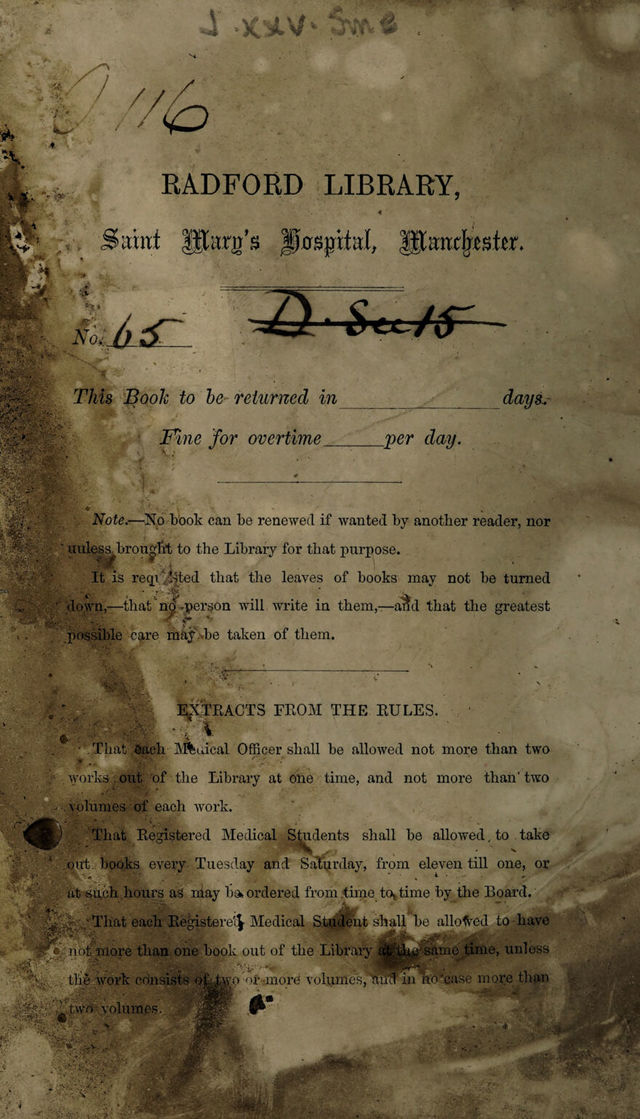 J.xxv. Sme
116
RADFORD LIBRARY,
Saint Mary's Hospital, Manchester.
No. 65 D. Sec 15
This Book to be returned in days.
Fine for overtime per day.
Note.—No book can be renewed if wanted by another reader, nor
unless brought to the Library for that purpose.
It is requested that the leaves of books may not be turned
down,—that no person will write in them,—and that the greatest
possible care may be taken of them.
EXTRACTS FROM THE RULES.
That each Medical Officer shall be allowed not more than two
works out of the Library at one time, and not more than two
volumes of each work.
That Registered Medical Students shall be allowed to take
out books every Tuesday and Saturday, from eleven till one, or
at such hours as may be ordered from time to time by the Board.
That each Registered Medical Student shall be allowed to have
not more than one book out of the Library at the same time, unless
the work consists of two or more volumes, and in no case more than
two volumes.